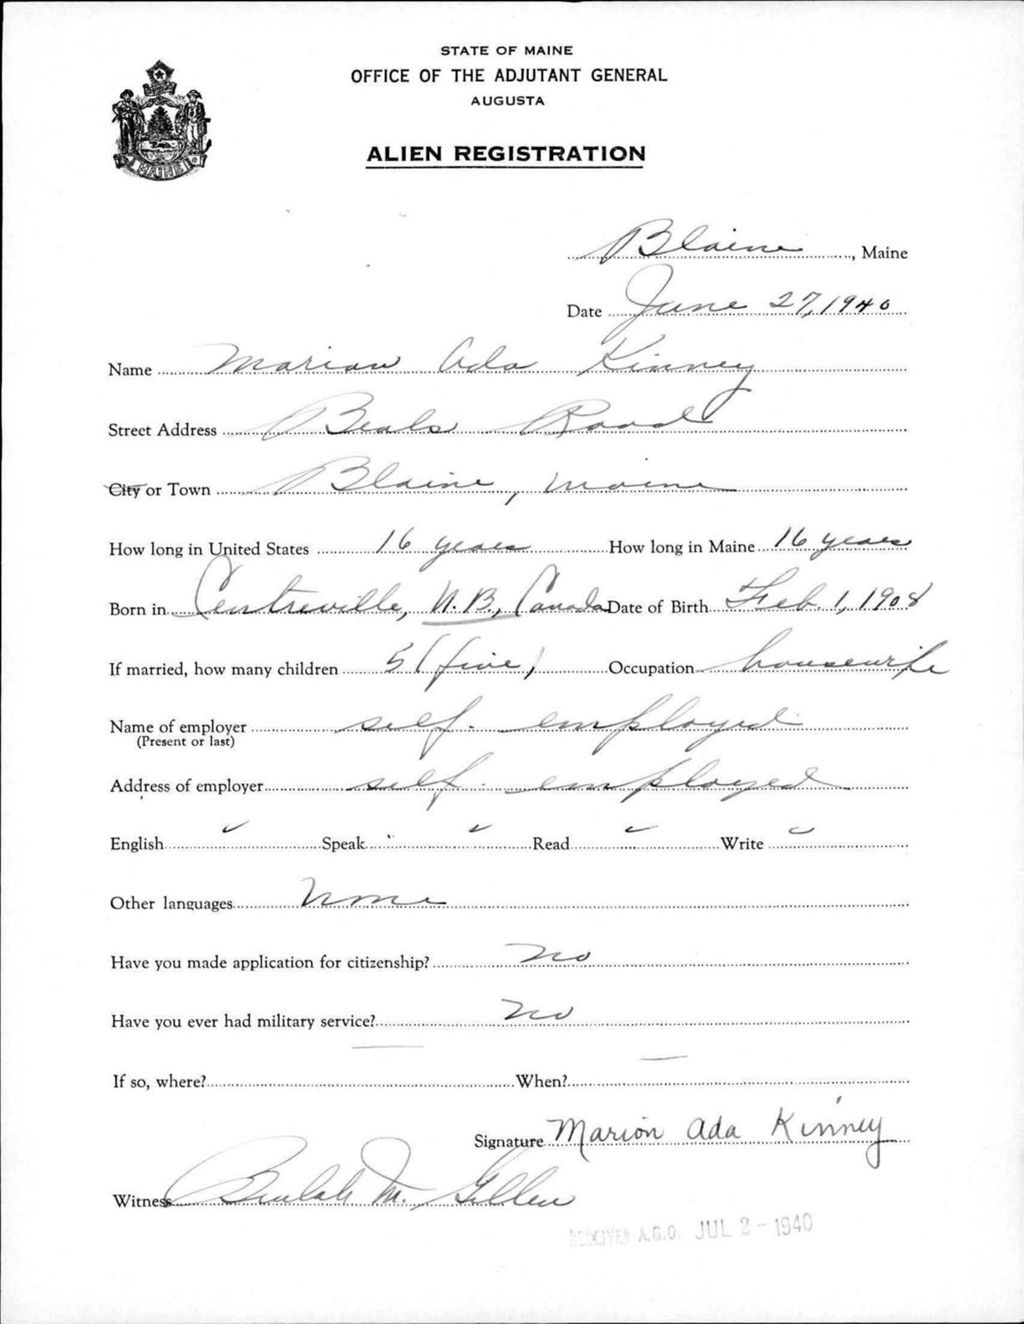 STATE OF MAINE
OFFICE OF THE ADJUTANT GENERAL
AUGUSTA
ALIEN REGISTRATION
MAINE
Blaine, Maine
Date June 27, 1940
Name Marion Ada Kinney
Street Address Beals Road
City or Town Blaine, Maine
How long in United States 16 years How long in Maine 16 years
Born in Centreville, N.B., Canada Date of Birth Feb. 1, 1908
If married, how many children 5 (five) Occupation housewife
Name of employer self-employed
(Present or last)
Address of employer self-employed
English ✓ Speak ✓ Read ✓ Write ✓
Other languages None
Have you made application for citizenship? No
Have you ever had military service? No
If so, where? — When? —
Signature Marion Ada Kinney
Witness Beulah M. Gillen
RECEIVED A.G.O. JUL 2 - 1940